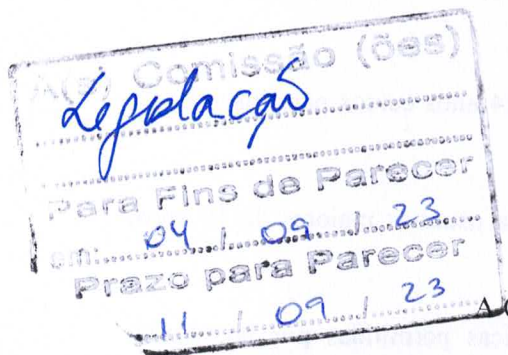 A(s) Comissão (ões)
Legislação
Para Fins de Parecer
em: 04 / 09 / 23
Prazo para Parecer
11 / 09 / 23
A